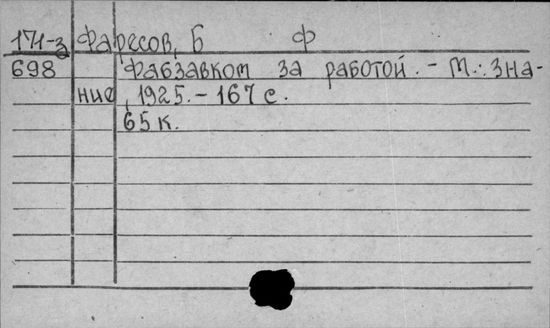 171-3 Фаресов, Б Ф
698 Фабзавком за работой. - М.: Зна-
ние, 1925. - 167 с.
65 к.